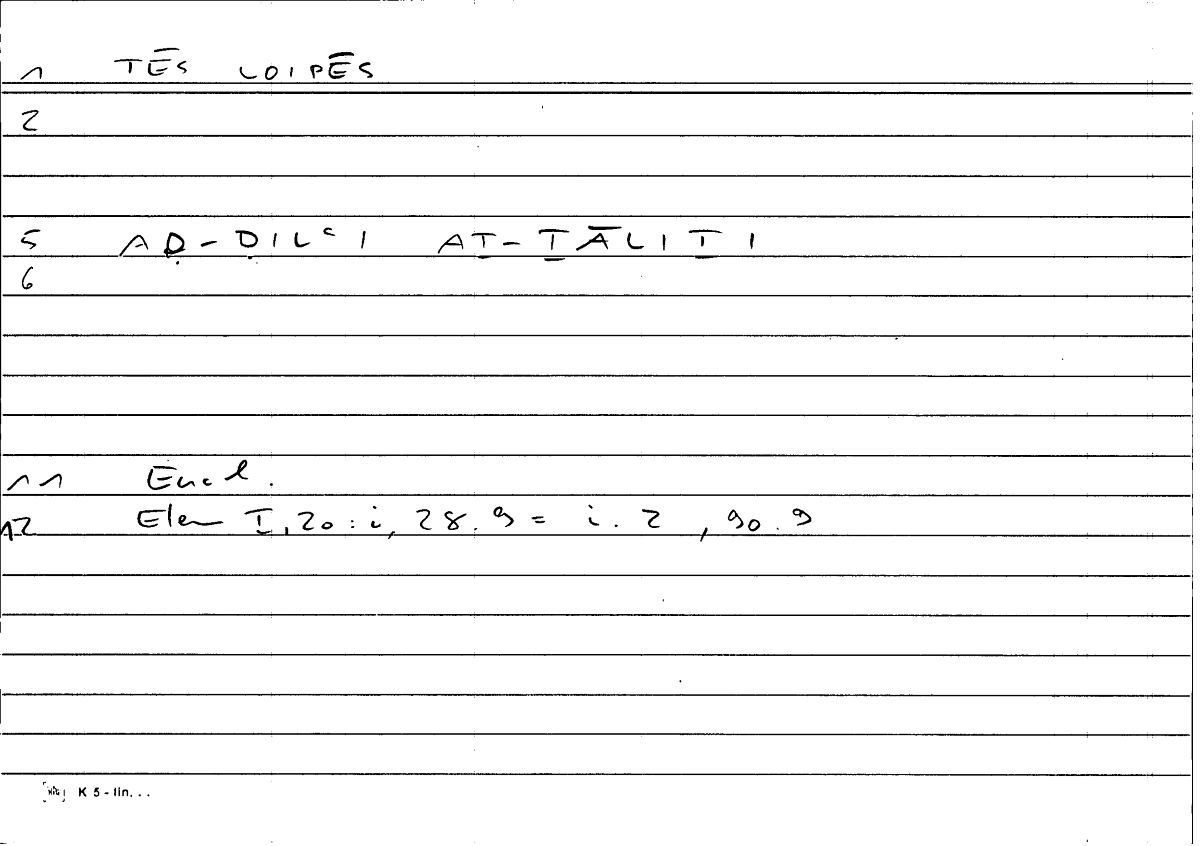 1 TĒS LOIPĒS
2
5 AḌ-ḌILʿI AṮ-ṮĀLIṮI
6
11 Eucl.
12 Elem I, 20 : i, 28.9 = i. 2, 90.9
K 5 - lin. . .